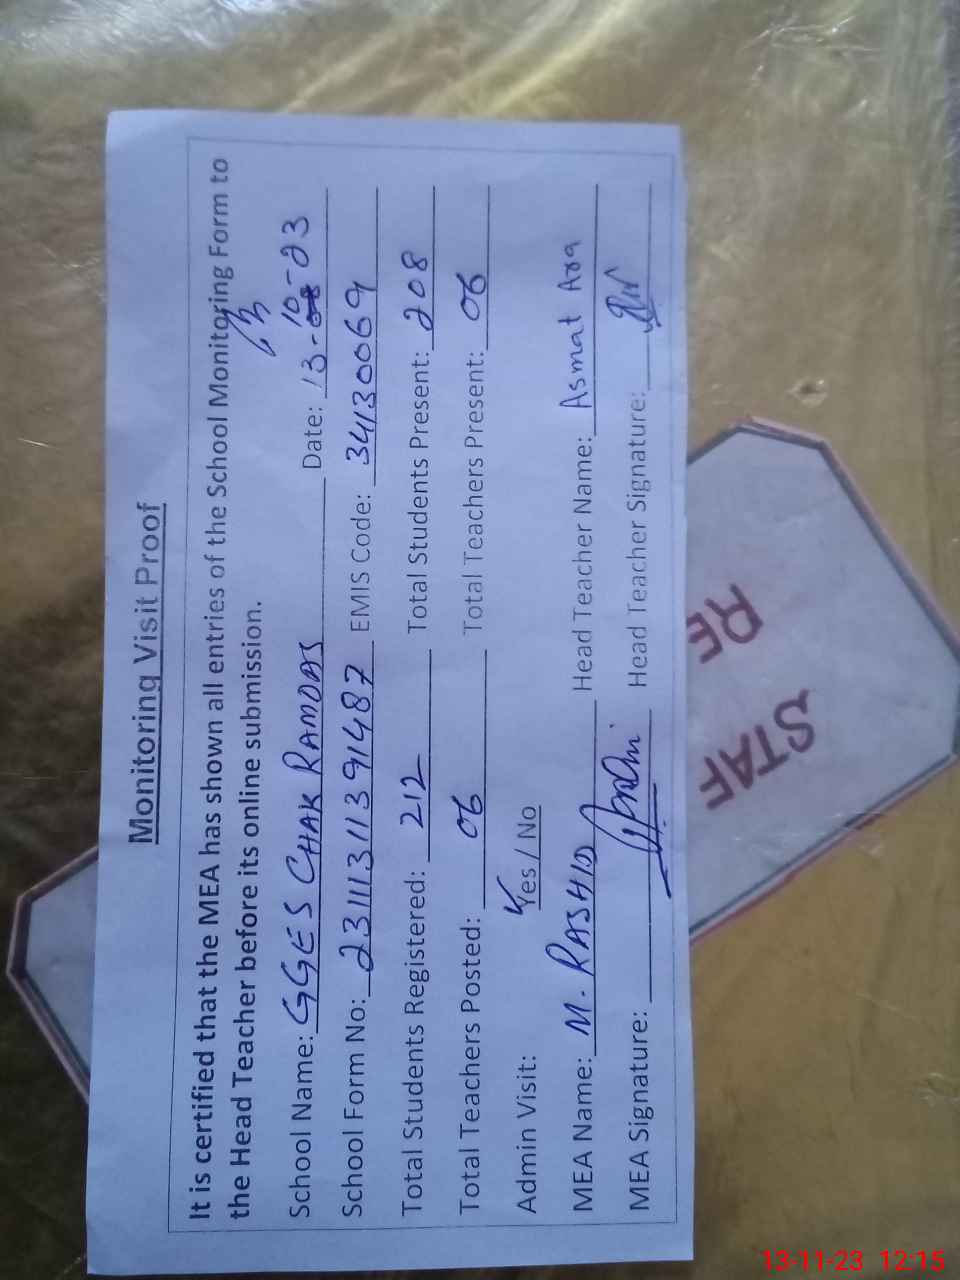 Monitoring Visit Proof
It is certified that the MEA has shown all entries of the School Monitoring Form to
the Head Teacher before its online submission.
School Name: GGES CHAK RAMDAS Date: 13-10-23
School Form No: 23111311391487 EMIS Code: 34130069
Total Students Registered: 212 Total Students Present: 208
Total Teachers Posted: 06 Total Teachers Present: 06
Admin Visit: Yes / No
MEA Name: M. RASHID Head Teacher Name: Asmat Ara
MEA Signature: Head Teacher Signature:
STAF
RE
13-11-23 12:15